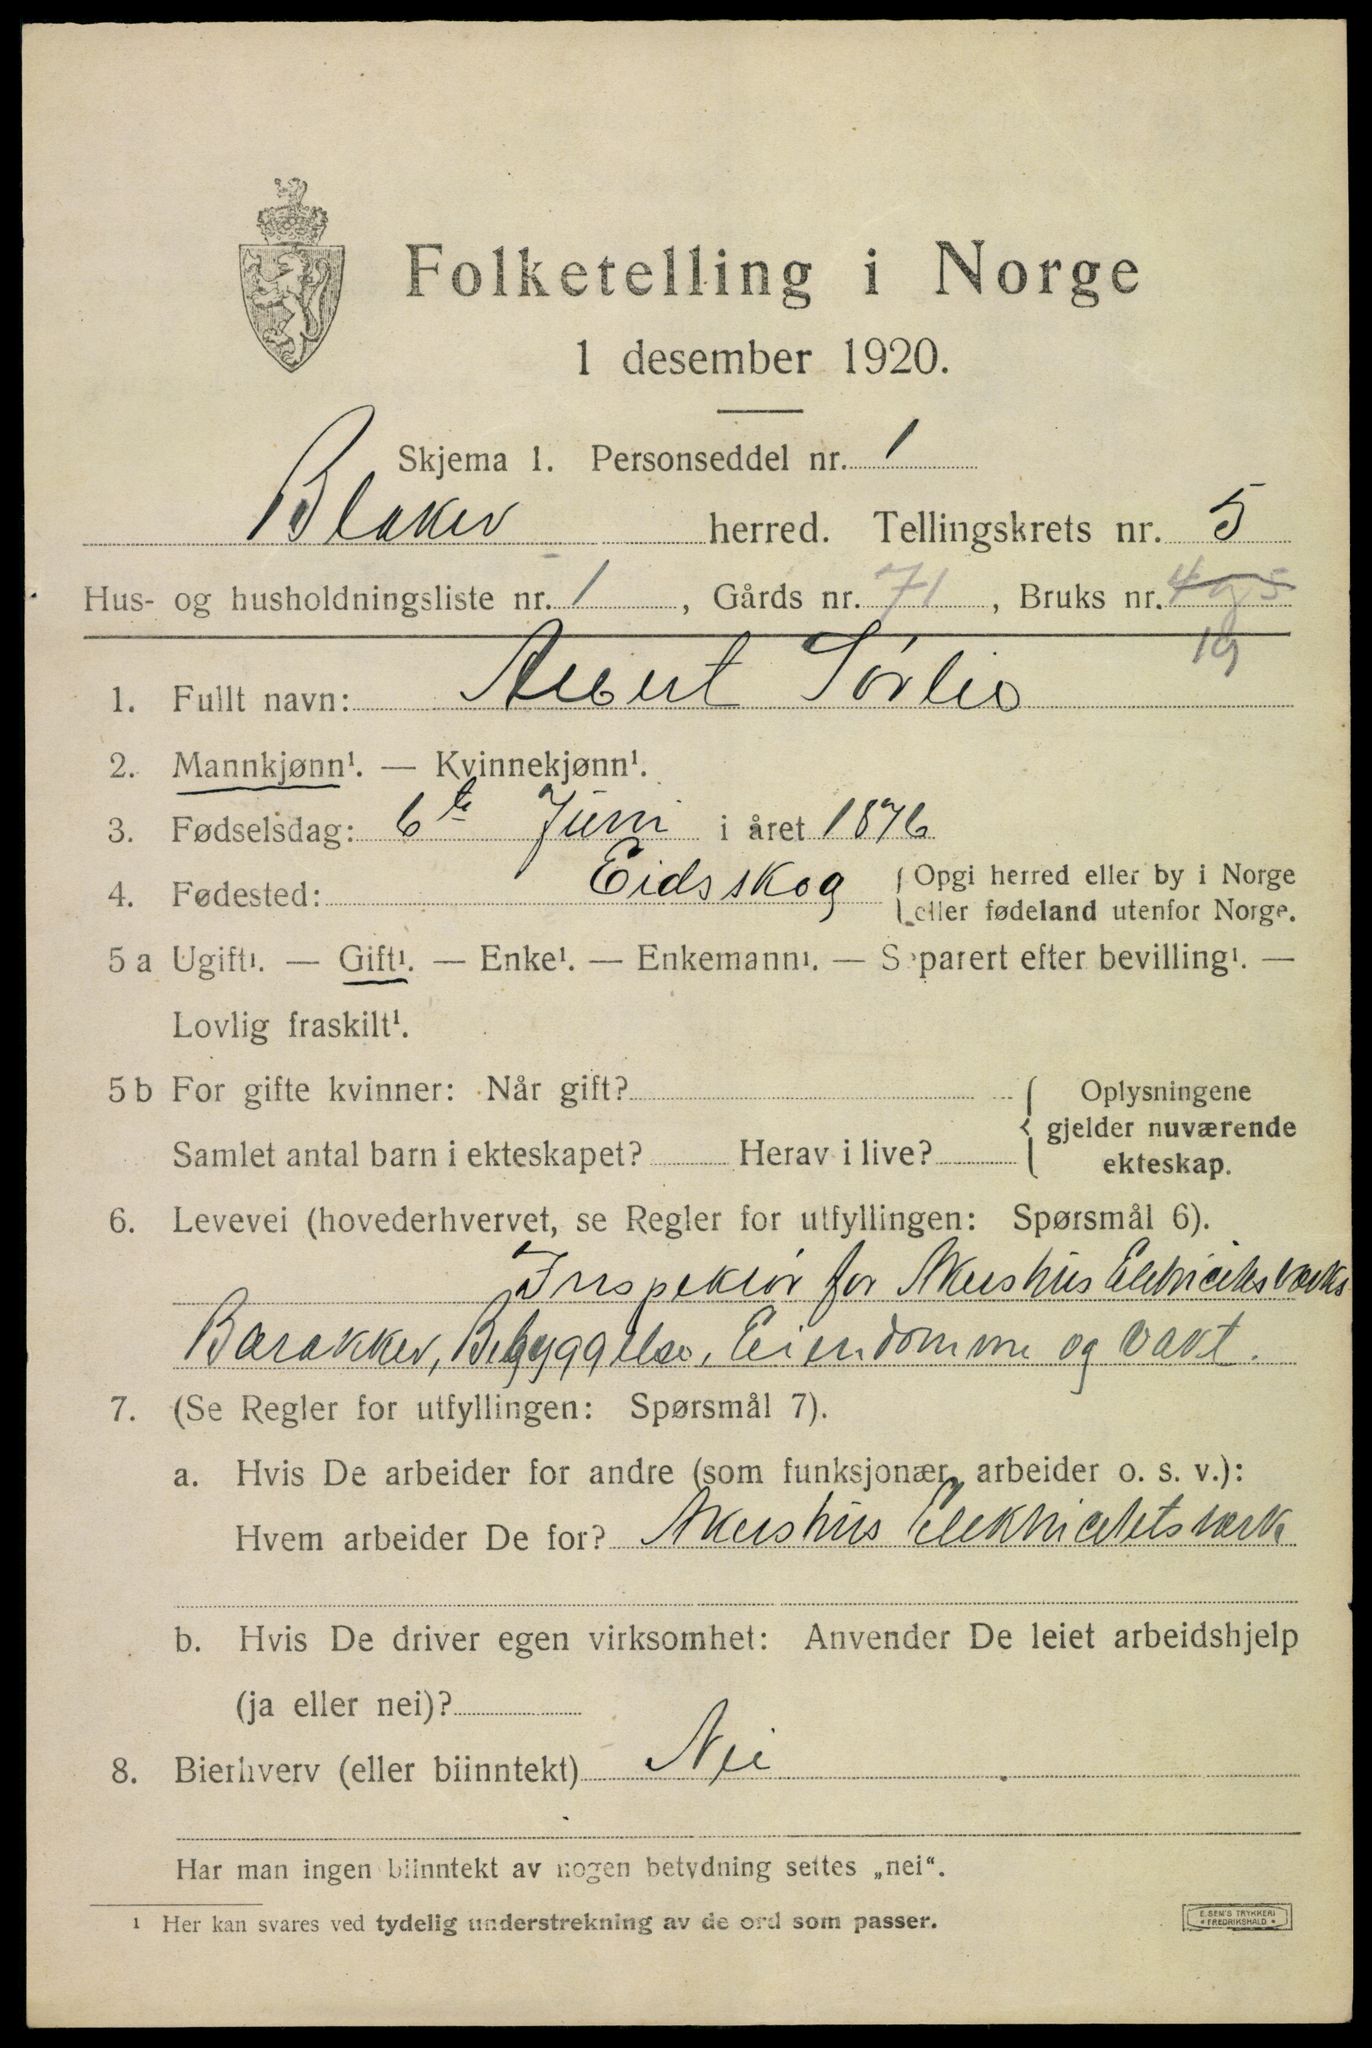 Folketelling i Norge
1 desember 1920.
Skjema 1. Personseddel nr. 1
Blaker herred. Tellingskrets nr. 5
Hus- og husholdningsliste nr. 1, Gårds nr. 71, Bruks nr. 4 og 5
19
1. Fullt navn: Albert Sørlie
2. Mannkjønn¹. — Kvinnekjønn¹.
3. Fødselsdag: 6te Juni i året 1876
4. Fødested: Eidsskog { Opgi herred eller by i Norge
eller fødeland utenfor Norge.
5 a Ugift¹. — Gift¹. — Enke¹. — Enkemann¹. — Separert efter bevilling¹. —
Lovlig fraskilt¹.
5 b For gifte kvinner: Når gift? { Oplysningene
gjelder nuværende
Samlet antal barn i ekteskapet? Herav i live? ekteskap.
6. Levevei (hovederhvervet, se Regler for utfyllingen: Spørsmål 6).
Inspektør for Akershus Elektricitetsværks
Barakker, Bebyggelse, Eiendomme og vakt.
7. (Se Regler for utfyllingen: Spørsmål 7).
a. Hvis De arbeider for andre (som funksjonær, arbeider o. s. v.):
Hvem arbeider De for? Akershus Elektricitetsværk
b. Hvis De driver egen virksomhet: Anvender De leiet arbeidshjelp
(ja eller nei)?
8. Bierhverv (eller biinntekt) Nei
Har man ingen biinntekt av nogen betydning settes „nei“.
¹ Her kan svares ved tydelig understrekning av de ord som passer.
E. SEM'S TRYKKERI
FREDRIKSHALD